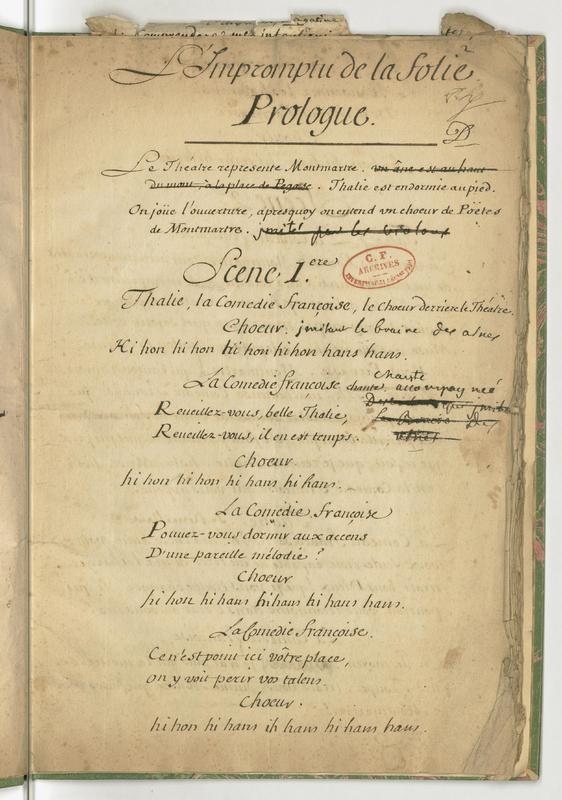 L'Impromptu de la folie
Prologue.
Le Théatre represente Montmartre. un âne est au haut
du mont, à la place de Pegase. Thalie est endormie au pied.
On joüe l'ouverture, apresquoy on entend un choeur de Poëtes
de Montmartre. jmité par les violons
Scene I.ere
C. F.
ARCHIVES
Thalie, la Comedie françoise, le Choeur derriere le Théatre.
Choeur. jmitant le braire des asnes
Hi hon hi hon hi hon hi hon hans hans.
chante
La Comedie françoise chante, accompagneé
Reveillez-vous, belle Thalie,
Reveillez-vous, il en est temps.
Choeur
hi hon hi hon hi hans hi hans.
La Comedie françoise
Pouvez-vous dormir aux accens
D'une pareille mélodie?
Choeur
hi hon hi hans hi hans hi hans hans.
La Comedie françoise.
Ce n'est point ici vôtre place,
on y voit perir vos talens.
Choeur.
hi hon hi hans ih hans hi hans hans.